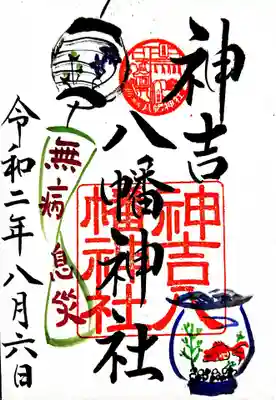 神吉
八幡神社
神吉八
幡神社
無病息災
令和二年八月六日